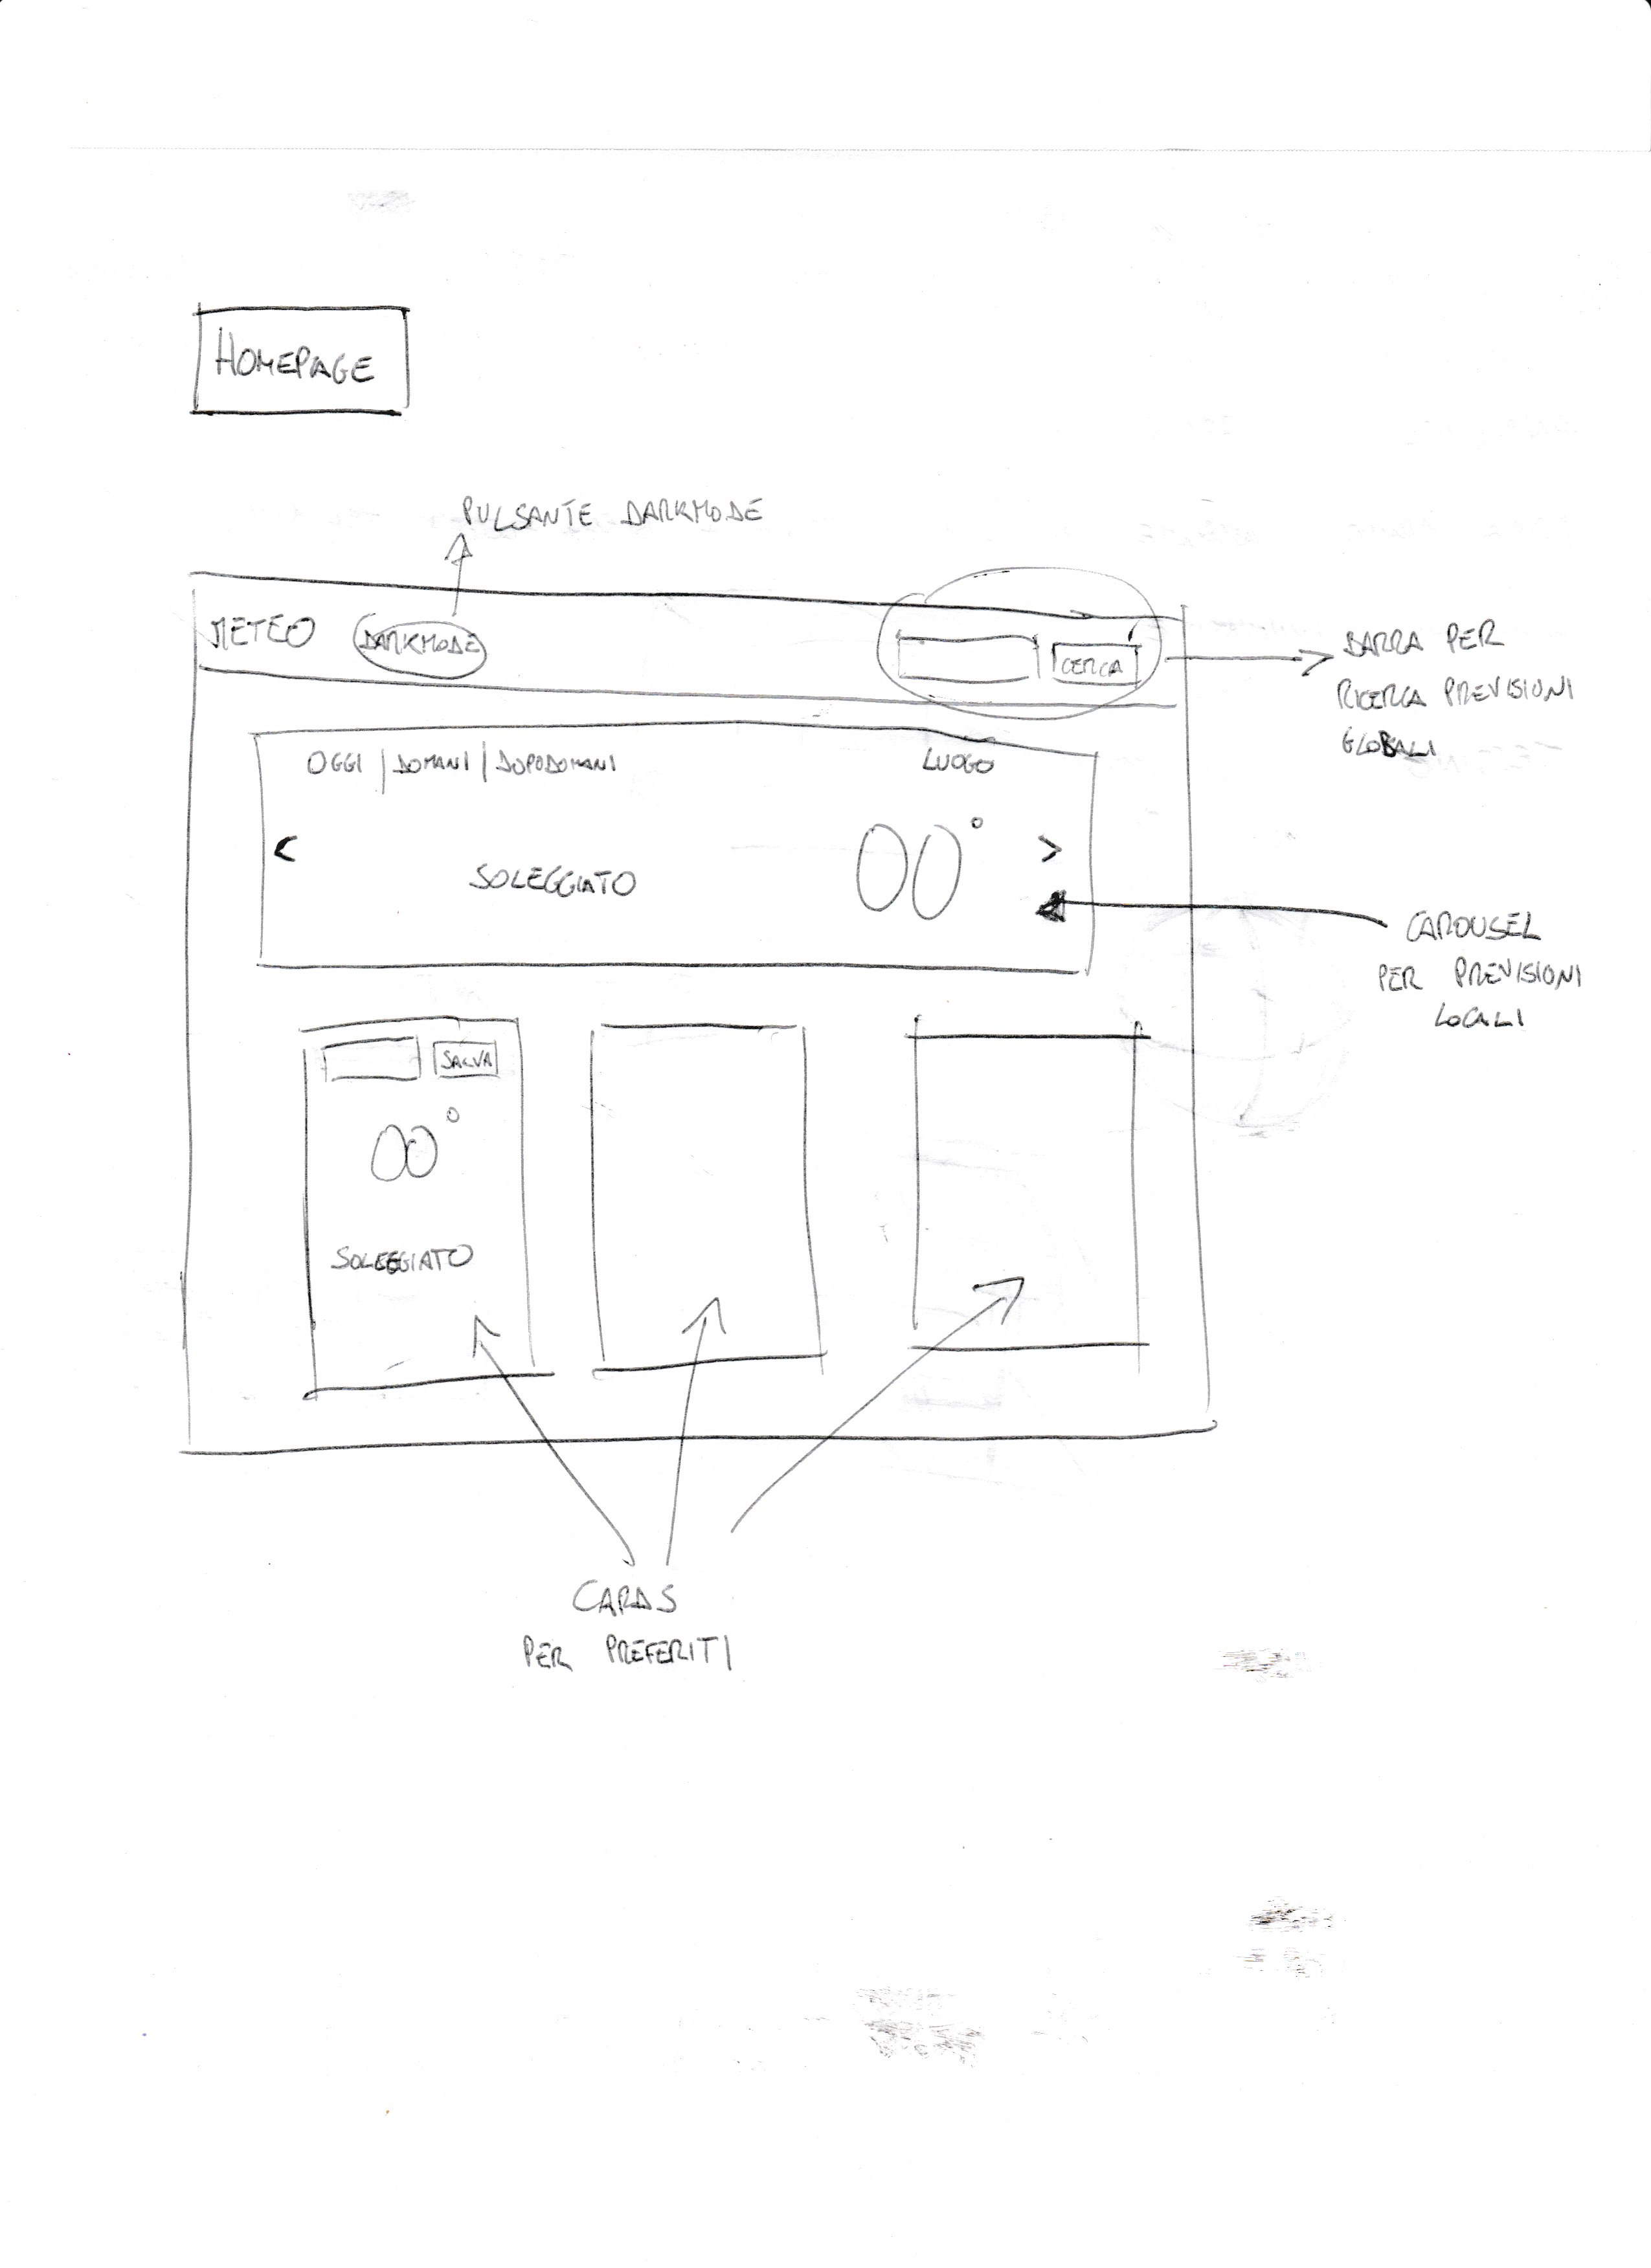 HOMEPAGE
PULSANTE DARKMODE
METEO DARKMODE CERCA
BARRA PER
RICERCA PREVISIONI
GLOBALI
OGGI | DOMANI | DOPODOMANI LUOGO
< SOLEGGIATO 00° >
CAROUSEL
PER PREVISIONI
LOCALI
SALVA
00°
SOLEGGIATO
CARDS
PER PREFERITI